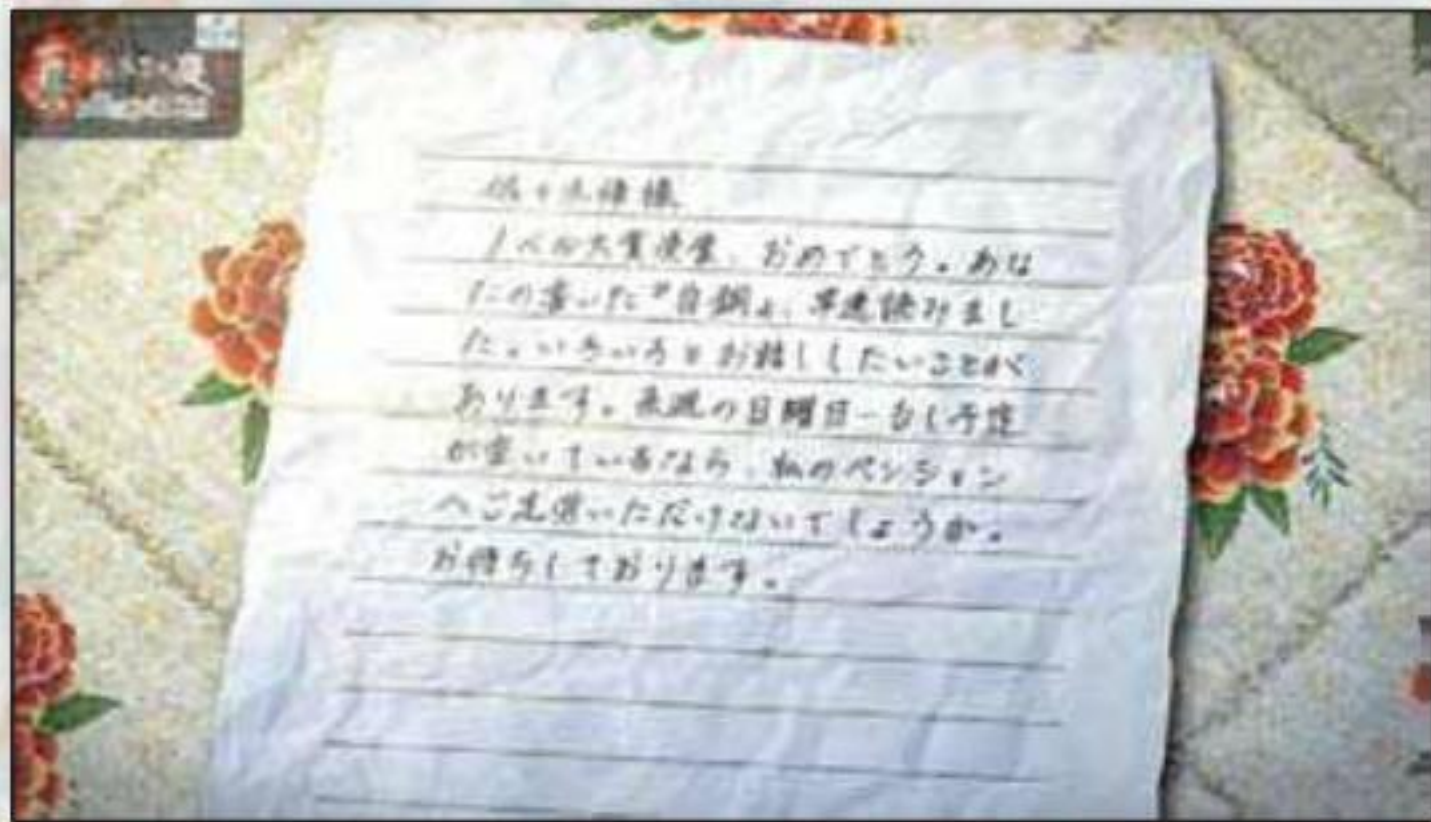 佐々木 様
ノベル大賞受賞、おめでとう。あな
たの書いた『白銅』、早速読みまし
た。いろいろとお話ししたいことが
あります。来週の日曜日一もし予定
が空いているなら、私のペンション
へご足労いただけないでしょうか。
お待ちしております。